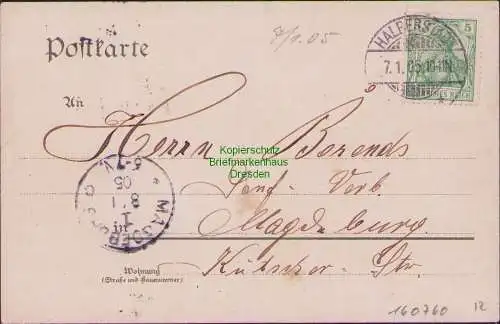 7/1.05
Postkarte
HALBERSTADT
7.1.05.10-11N.
5
An
Herrn Barends
Kopierschutz
Briefmarkenhaus
Dresden
Senf-Verb.
Magdeburg
Kutscher-Str.
MAGDEBURG
8.1
05
Wohnung
(Straße und Hausnummer)
160760 12